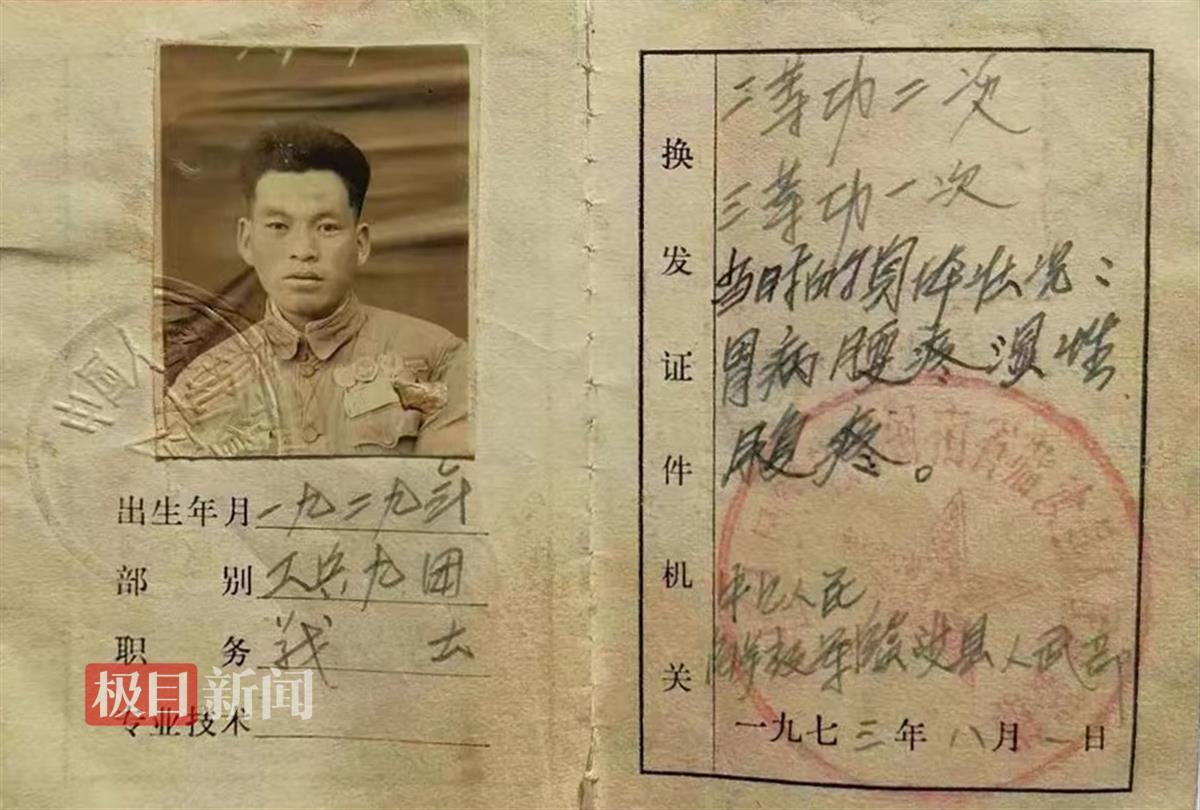 中国人
出生年月 一九二九年
部 别 工兵九团
职 务 战 士
极目新闻
专业技术
换发证件机关
二等功二次
三等功一次
当时的身体状况：
胃病 腰疼 慢性
腹疼。
中国人民
解放军 县人武部
一九七三年八月一日
河南省